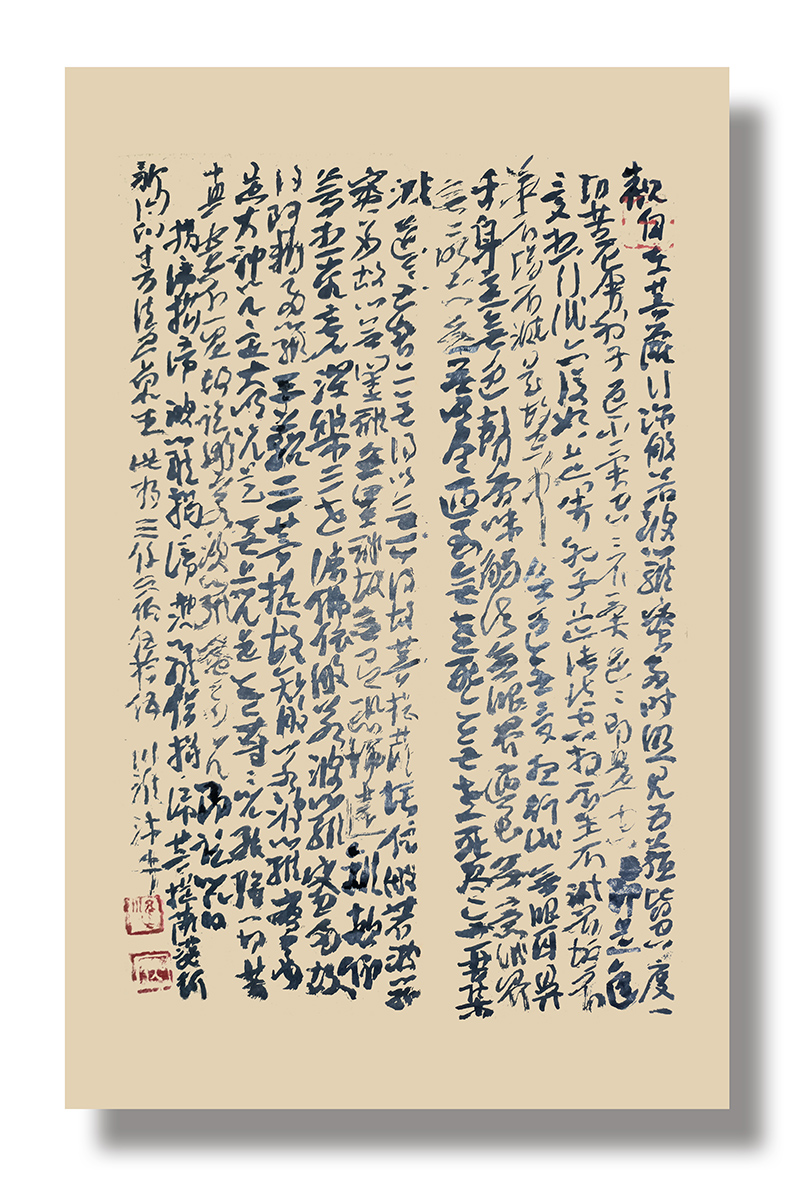 觀自在菩薩行深般若波羅蜜多時照見五蘊皆空度一
切苦厄舍利子色不異空空不異色色即是空空即是色
受想行識亦復如是舍利子是諸法空相不生不滅不垢不
淨不增不減是故空中無色無受想行識無眼耳鼻
舌身意無色聲香味觸法無眼界乃至無意識界
無無明亦無無明盡乃至無老死亦無老死盡無苦集
滅道無智亦無得以無所得故菩提薩埵依般若波羅
蜜多故心無罣礙無罣礙故無有恐怖遠離顛倒
夢想究竟涅槃三世諸佛依般若波羅蜜多故
得阿耨多羅三藐三菩提故知般若波羅蜜多
是大神咒是大明咒是無上咒是無等等咒能除一切苦
真實不虛故說般若波羅蜜多咒即說咒曰
揭諦揭諦波羅揭諦波羅僧揭諦菩提薩婆訶